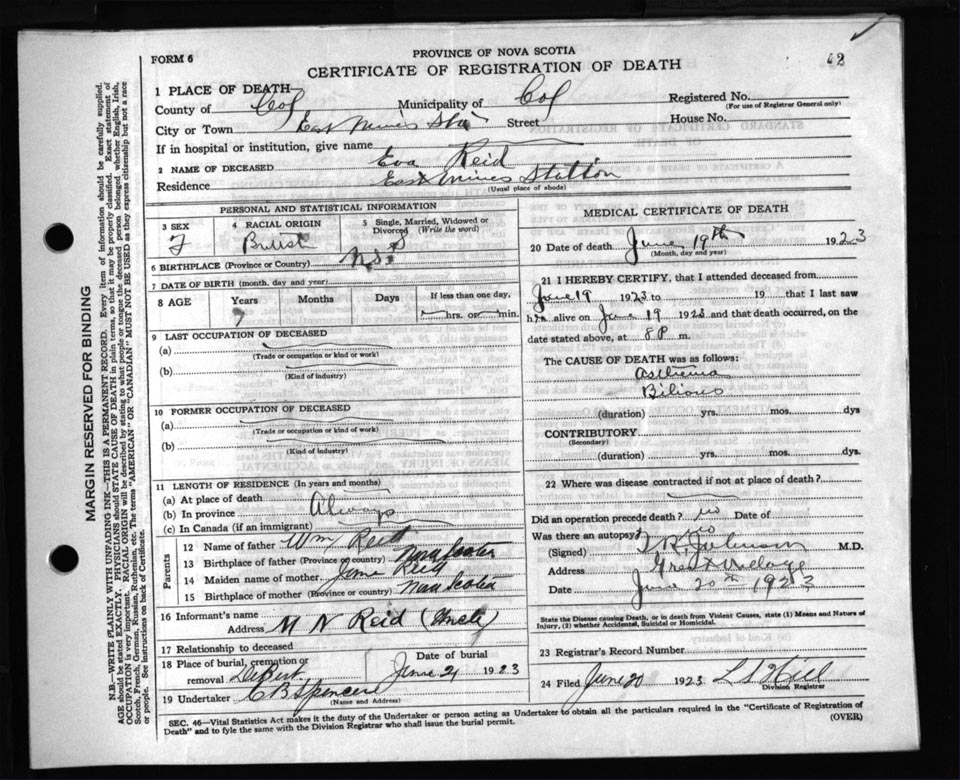 FORM 6
PROVINCE OF NOVA SCOTIA
CERTIFICATE OF REGISTRATION OF DEATH
62
1 PLACE OF DEATH
County of Col Municipality of Col Registered No.
(For use of Registrar General only)
City or Town East Mines Sta Street House No.
If in hospital or institution, give name
2 NAME OF DECEASED Eva Reid
Residence East Mines Station
(Usual place of abode)
PERSONAL AND STATISTICAL INFORMATION
3 SEX 4 RACIAL ORIGIN 5 Single, Married, Widowed or Divorced (Write the word)
F British S
6 BIRTHPLACE (Province or Country) N.S.
7 DATE OF BIRTH (month, day and year)
8 AGE Years Months Days If less than one day,
7 hrs. or min.
9 LAST OCCUPATION OF DECEASED
(a)
(Trade or occupation or kind or work)
(b)
(Kind of industry)
10 FORMER OCCUPATION OF DECEASED
(a)
(Trade or occupation or kind of work)
(b)
(Kind of industry)
11 LENGTH OF RESIDENCE (In years and months)
(a) At place of death
(b) In province Always
(c) In Canada (if an immigrant)
Parents
12 Name of father Wm Reid
13 Birthplace of father (Province or country) Nova Scotia
14 Maiden name of mother Reid
15 Birthplace of mother (Province or country) Nova Scotia
16 Informant's name
Address M N Reid (Uncle)
17 Relationship to deceased
18 Place of burial, cremation or removal DeBert Date of burial June 21 1923
19 Undertaker C B Spencer
(Name and Address)
MEDICAL CERTIFICATE OF DEATH
20 Date of death June 19th 1923
(Month, day and year)
21 I HEREBY CERTIFY, that I attended deceased from
June 19 1923 to 19 that I last saw
her alive on June 19 1923 and that death occurred, on the
date stated above, at 8 P m.
The CAUSE OF DEATH was as follows:
Asthenia
(duration) yrs. mos. dys
CONTRIBUTORY
(Secondary)
(duration) yrs. mos. dys.
22 Where was disease contracted if not at place of death?
Did an operation precede death? no Date of
Was there an autopsy? no
(Signed) T R Johnson M.D.
Address Great Village
Date June 20th 1923
State the Disease causing Death, or in death from Violent Causes, state (1) Means and Nature of
Injury, (2) whether Accidental, Suicidal or Homicidal.
23 Registrar's Record Number
24 Filed June 20 1923 L S Hill
Division Registrar
SEC. 46—Vital Statistics Act makes it the duty of the Undertaker or person acting as Undertaker to obtain all the particulars required in the "Certificate of Registration of
Death" and to fyle the same with the Division Registrar who shall issue the burial permit.
(OVER)
MARGIN RESERVED FOR BINDING
N.B.—WRITE PLAINLY WITH UNFADING INK—THIS IS A PERMANENT RECORD. Every item of information should be carefully supplied.
AGE should be stated EXACTLY. PHYSICIANS should STATE CAUSE OF DEATH in plain terms, so that it may be properly classified. Exact statement of
OCCUPATION is very important. RACIAL ORIGIN will be described by stating to what people or tongue the deceased person belonged whether English, Irish,
Scotch, French, German, Russian, Ruthenian, etc. The terms "AMERICAN" OR "CANADIAN" MUST NOT BE USED as they express citizenship but not a race
or people. See instructions on back of Certificate.